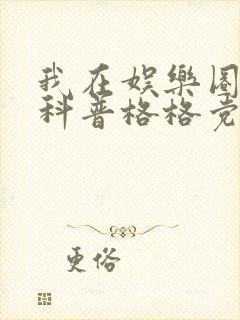 我在娱樂圈
科普格格党
更俗